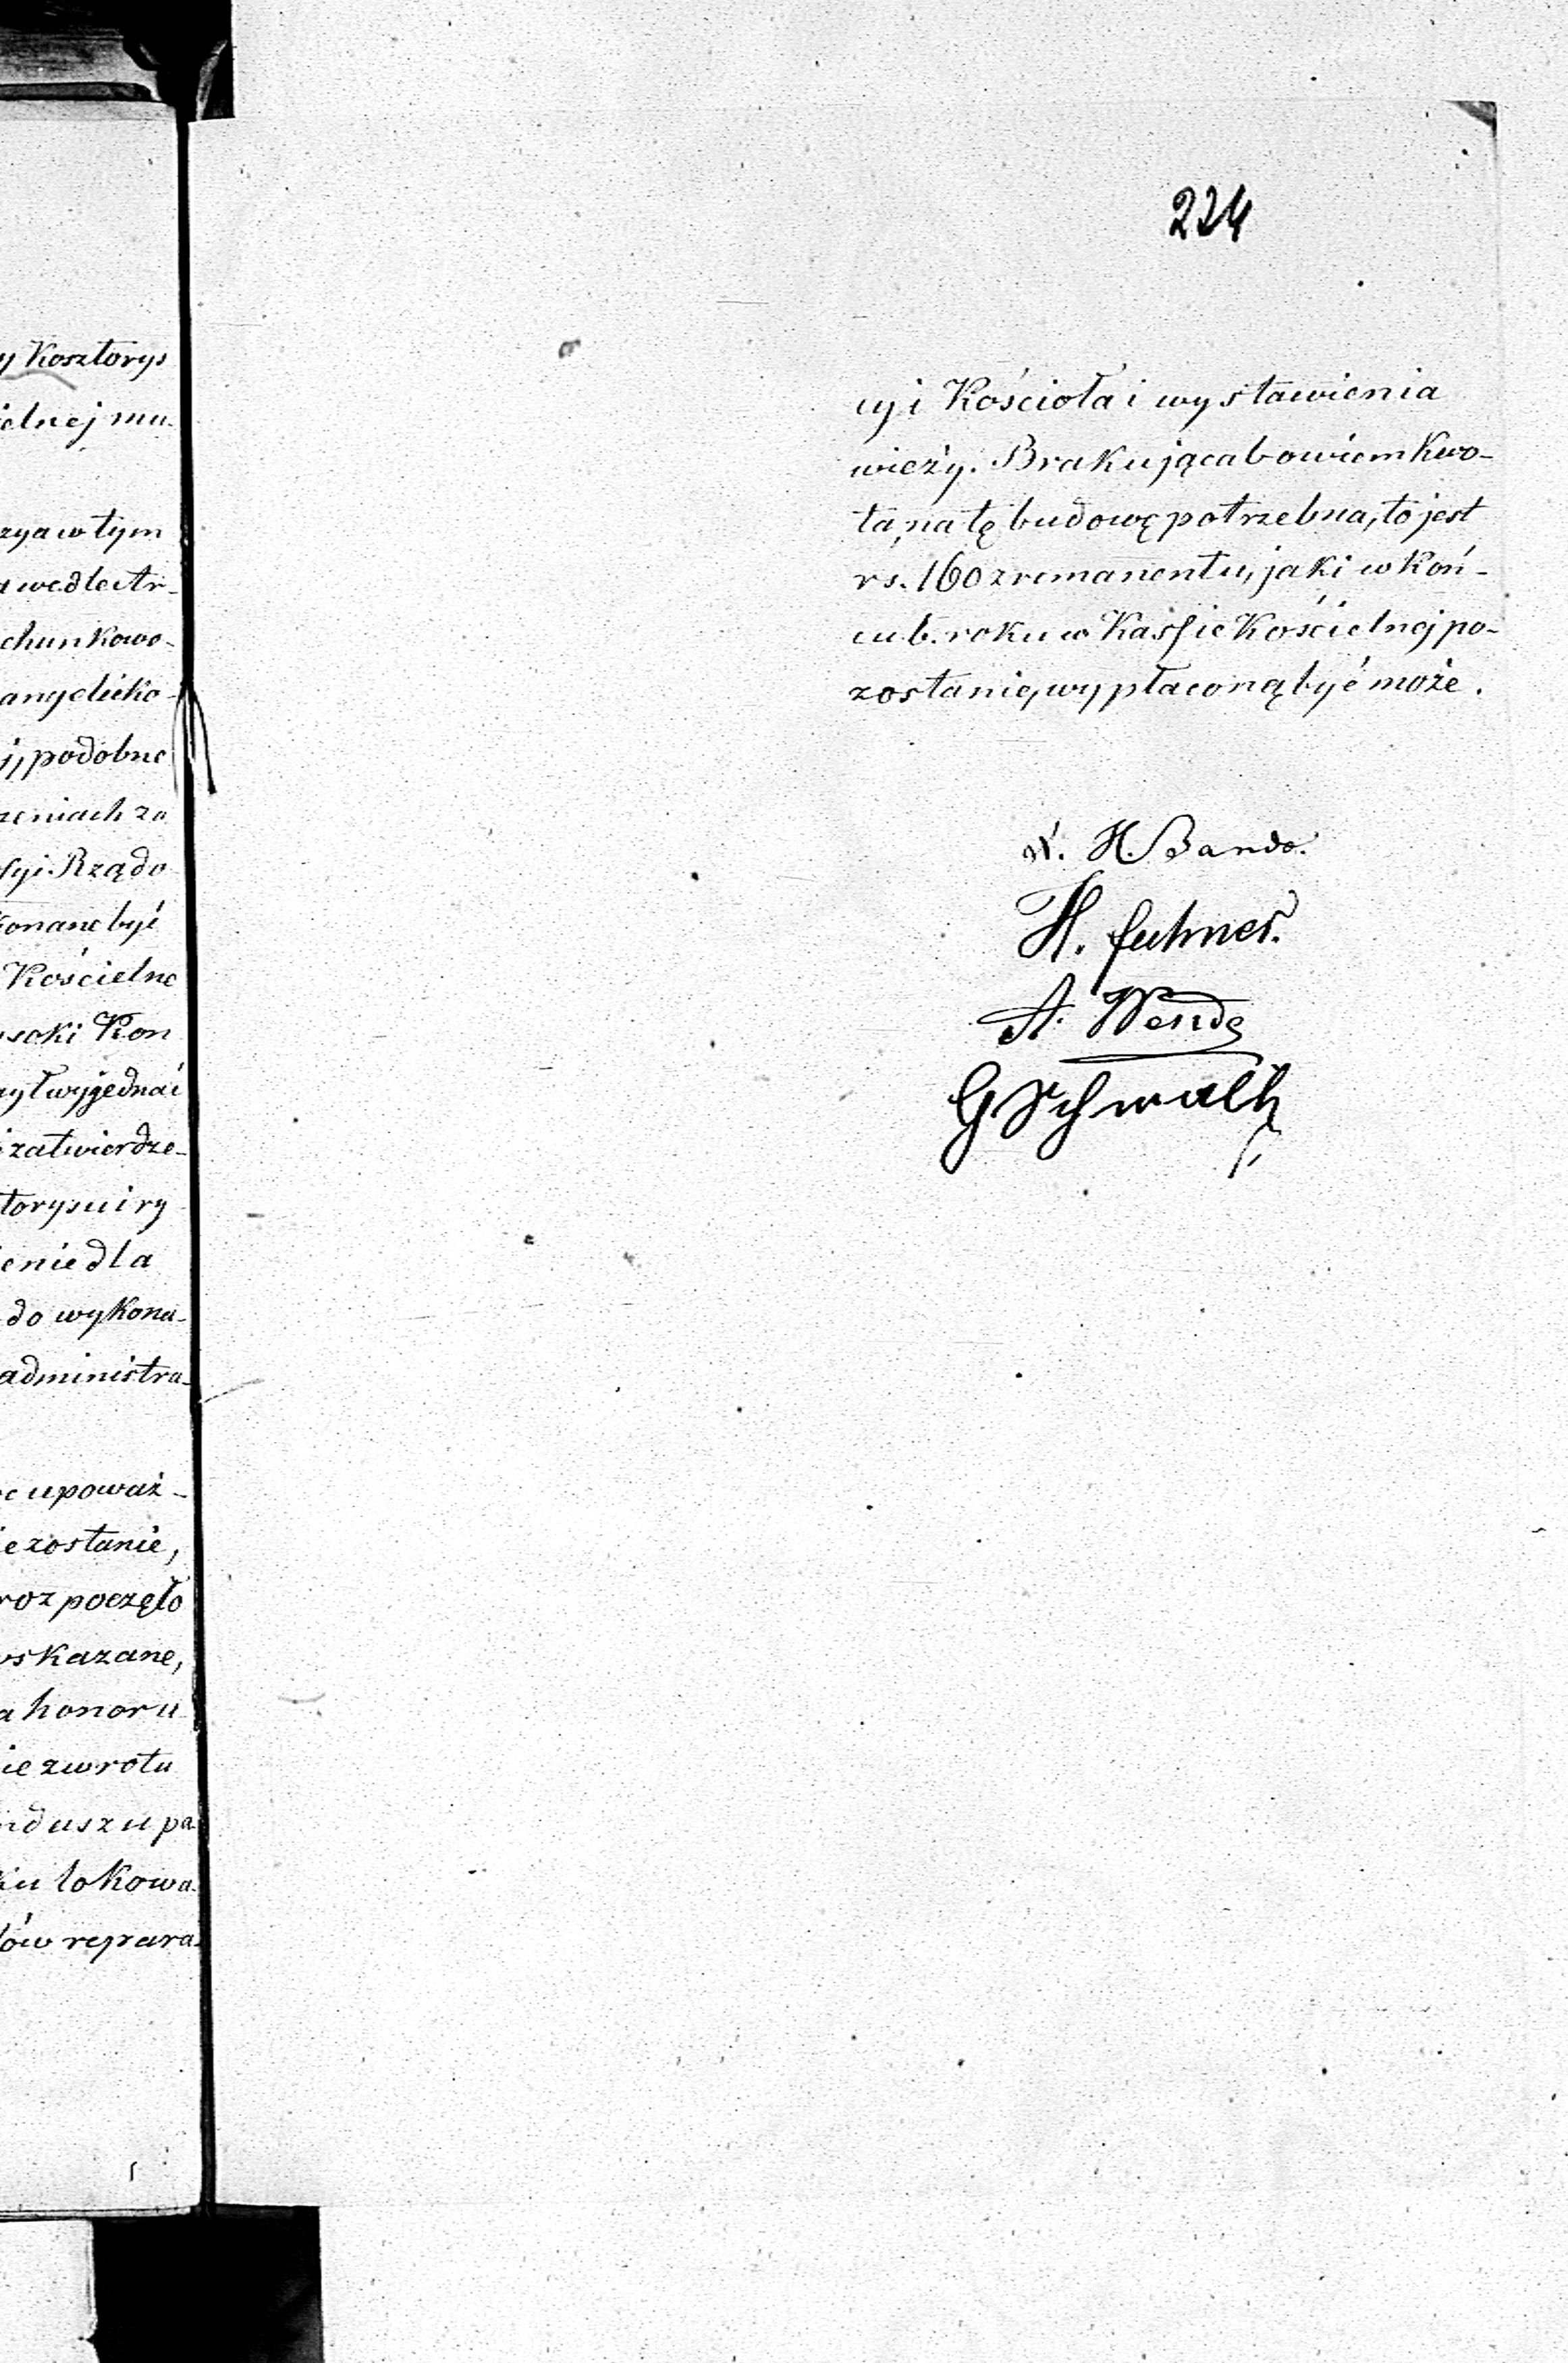 y Kosztorys
ielnej mu-
zya w tym
a wedle Ar-
chunkowo-
angelicko-
j, podobne
zeniach za
ssyi Rządo
konane być
Kościelne
ysoki Kon
zył wyjednać
i zatwierdze-
torysu i ry
enie dla
do wykona-
administra-
c upoważ-
ie zostanie,
rozpoczęło
wskazane,
a honoru
ie zwrotu
nduszu pa
ku lokowa
ów repara-
224
cyi Kościoła i wystawienia
wieży. Brakująca bowiem kwo-
ta, na tę budowę potrzebna, to jest
rs. 160 z remanentu, jaki w koń-
cu b. roku w Kassie Kościelnej po-
zostanie, wypłaconą być może.
X. H. Bando.
H.
A. Wende
G Schwalb